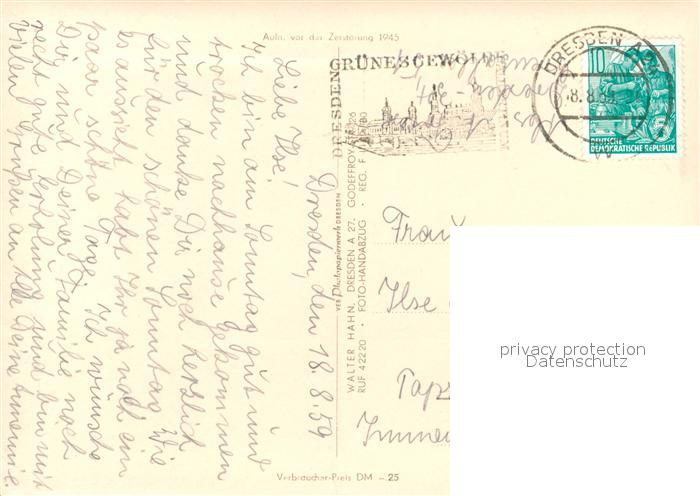 Aufn. vor der Zerstörung 1945
Dresden, den 18.8.59
Liebe Ilse!
Ich bin am Sonntag gut und
trocken nachhause gekommen
und danke Dir noch herzlich
für den schönen Sonntag. Wie
es aussieht habt Ihr ja noch ein
paar schöne Tage. Ich wünsche
Dir und Deiner Familie noch
recht gute Erholung und bin mit
vielen Grüßen an Alle Deine
VEB Photopapierwerk DRESDEN
WALTER HAHN, DRESDEN A 27, GODEFFROYSTR. 28
RUF 42220 · FOTO-HANDABZUG · REG.
DRESDEN
GRÜNES GEWÖLBE
DRESDEN
8.8.59
10
DEUTSCHE
DEMOKRATISCHE REPUBLIK
Frau
Ilse
privacy protection
Datenschutz
Verbraucher-Preis DM -.25